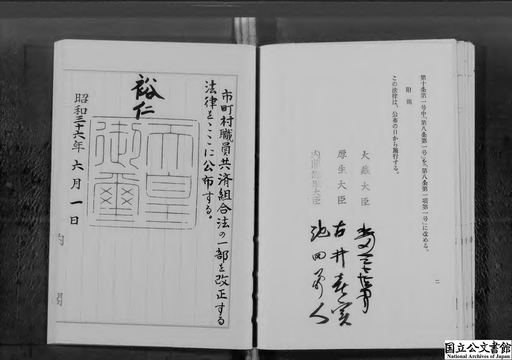 第十条第一号中「第八条第一号」を「第八条第一項第一号」に改める。
附則
この法律は、公布の日から施行する。
大蔵大臣
厚生大臣 古井喜実
内閣総理大臣 池田勇人
二
市町村職員共済組合法の一部を改正する
法律をここに公布する。
裕仁
天皇御璽
昭和三十六年六月一日
国立公文書館
National Archives of Japan